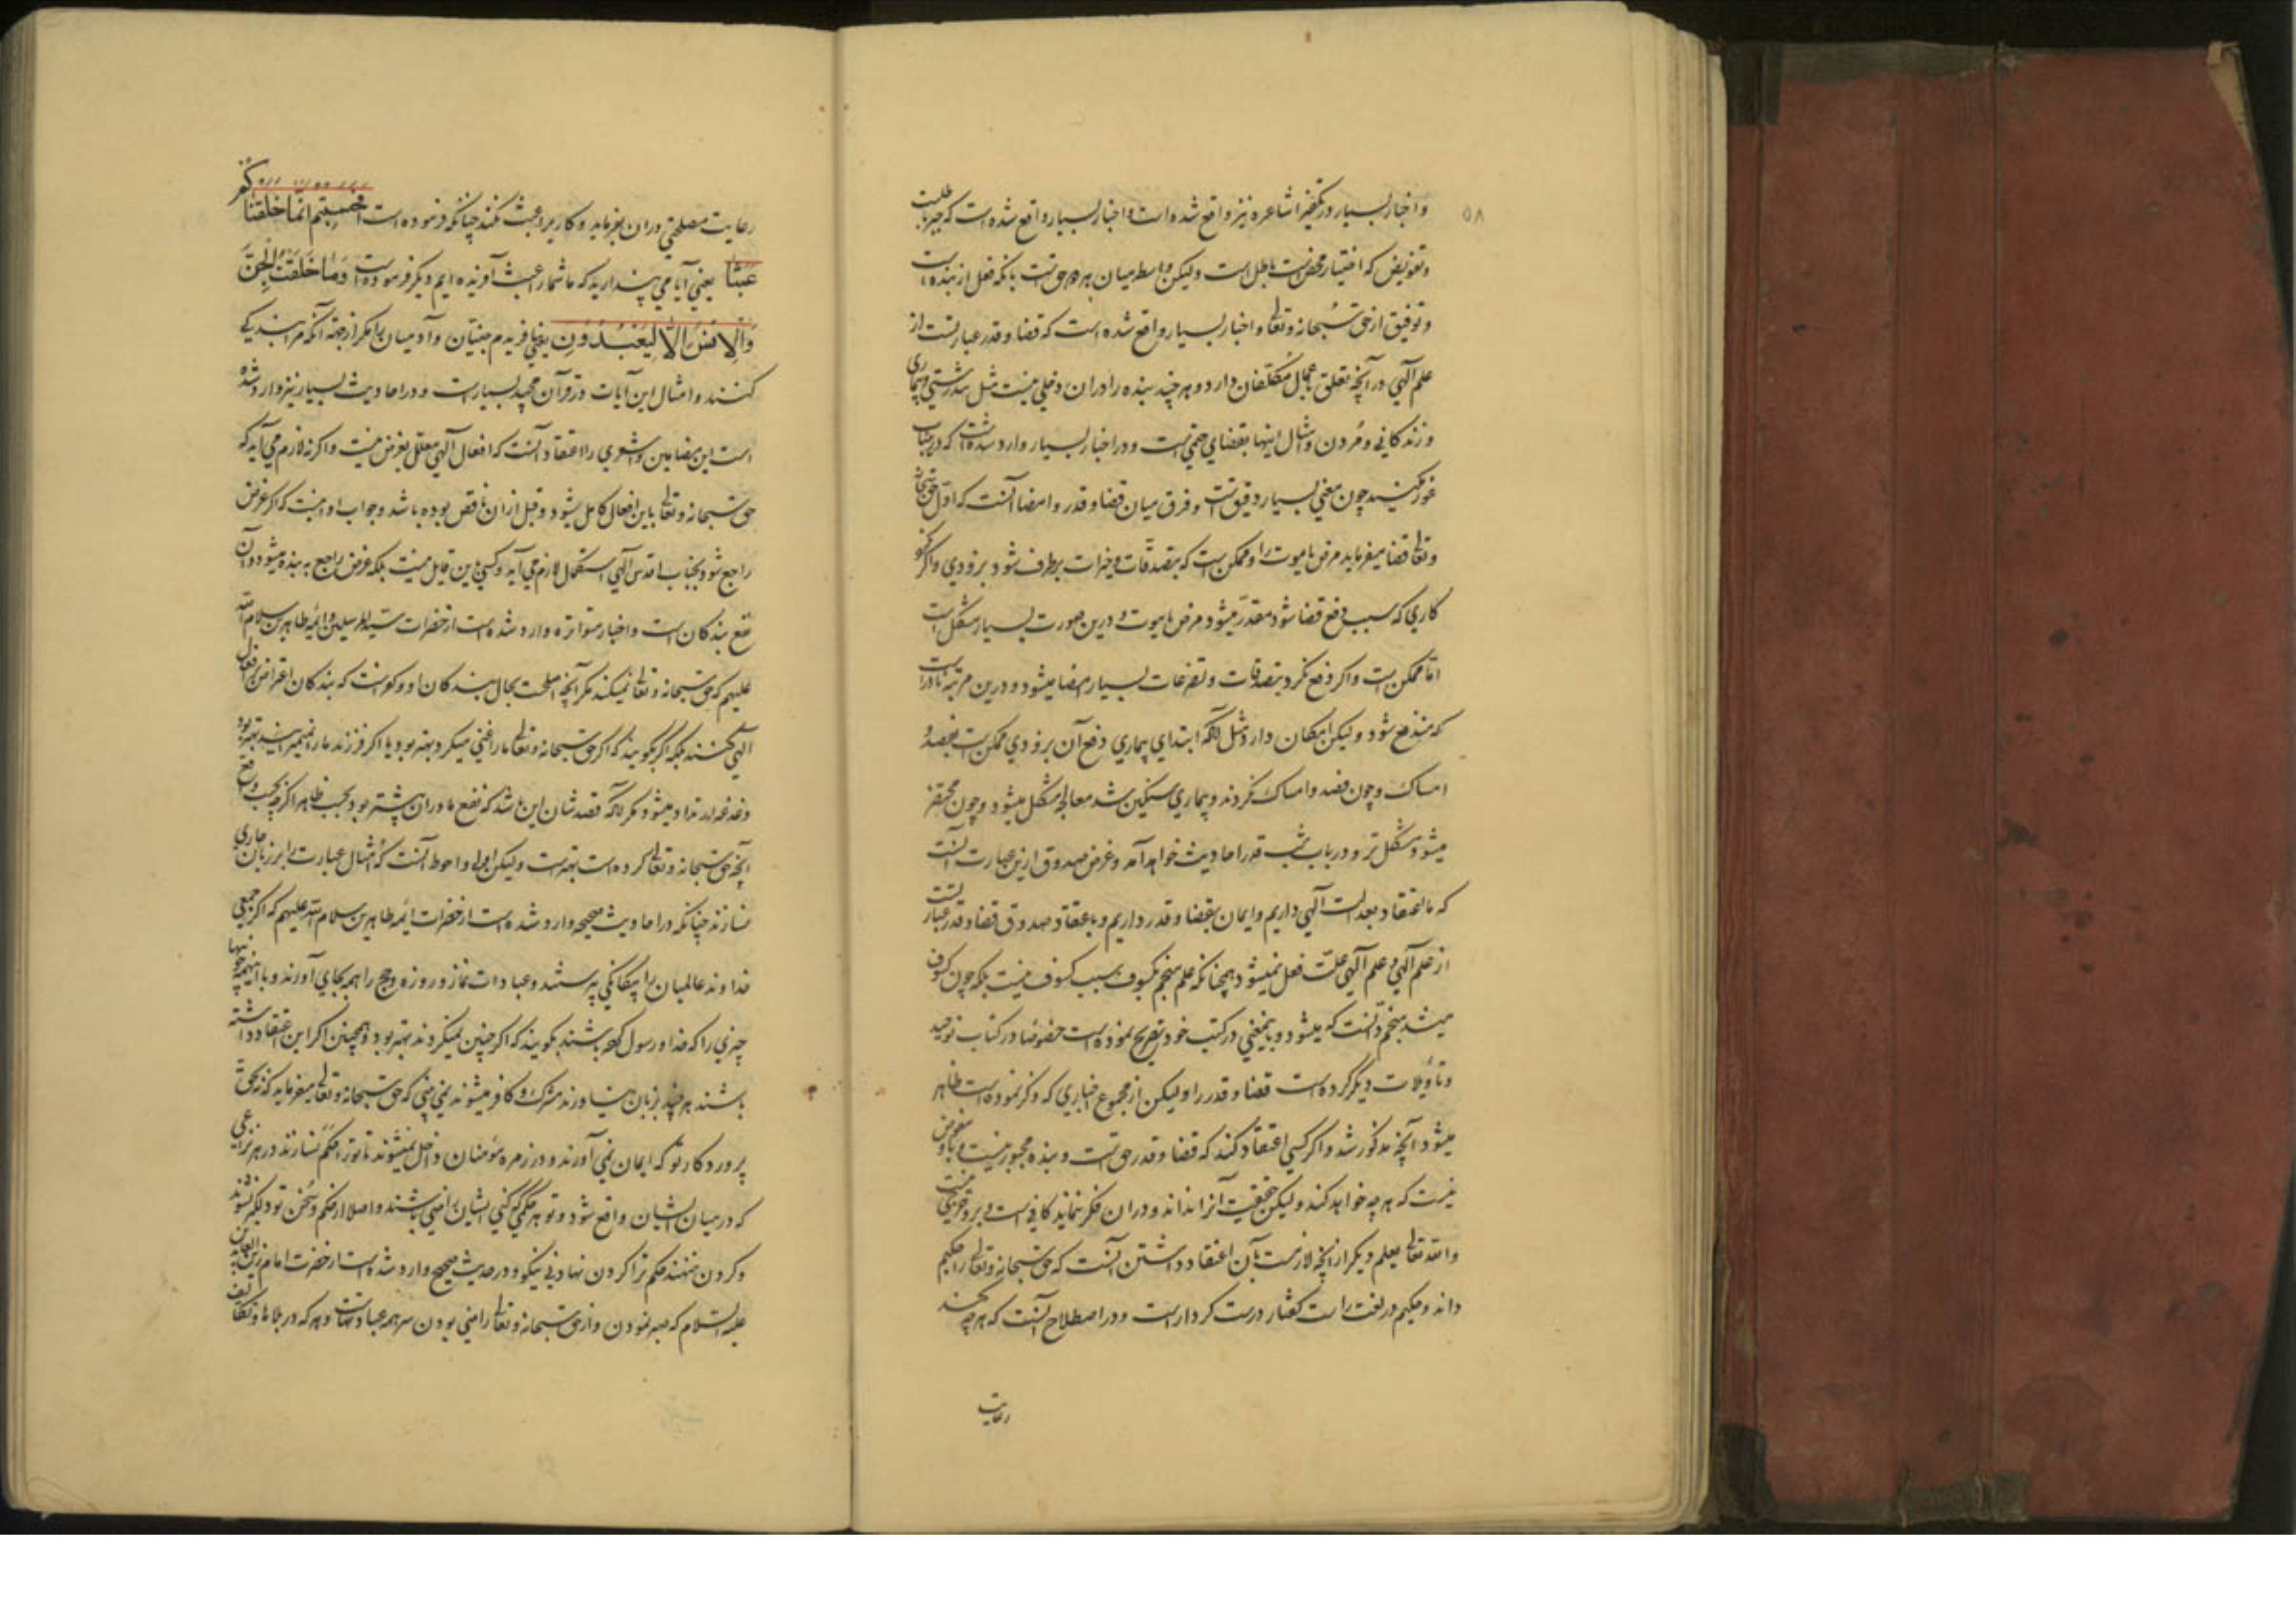 ۵۸
و اخبار بسیار در تکفیر اشاعره نیز واقع شده است و اخبار بسیار واقع شده است که جبر باطلست
و تفویض که اختیار محض است باطل است و لیکن واسطه میان هر دو حق است بانکه فعل از بنده است
و توفیق از حق سبحانه و تعالی و اخبار بسیار واقع شده است که قضا و قدر عبارتست از
علم آلهی در آنچه تعلق باعمال مکلفان دارد و هر چند بنده را در ان دخلی نیست مثل تندرستی و بیماری
و زندکانی و مردن و مثال اینها بقضای حتمی است و در اخبار بسیار وارد شده است که درینباب
غور مکنید چون معنی بسیار دقیق است و فرق میان قضا و قدر و امضا آنست که اول حق سبحانه
و تعالی قضا میفرماید مرض یا موت را و ممکن است که بتصدقات و خیرات برطرف شود بزودی و اکر نکو
کاری که سبب دفع قضا شود مقدر میشود مرض یا موت و درین صورت بسیار مشکل است
اما ممکن است و اکر دفع نکرد بتصدقات و تضرعات بسیار امضا میشود و درین مرتبه نادر است
که مندفع شود و لیکن امکان دارد مثل آنکه ابتدای بیماری دفع آن بزودی ممکن است بفصد و
امساک و چون فصد و امساک نکردند و بیماری سنکین شد معالجه مشکل میشود و چون محتضر
میشود مشکل تر و در باب شب قدر احادیث خواهد آمد و غرض صدوق ازین عبارت آنست
که ما اعتقاد بعدالت آلهی داریم و ایمان بقضا و قدر داریم و باعتقاد صدوق قضا و قدر عبارتست
از علم آلهی و علم آلهی علت فعل نمیشود همچنانکه علم منجم بکسوف سبب کسوف نیست بلکه چون کسوف
میشد منجم دانست که میشود و باینمعنی در کتب خود تصریح نموده است خصوصا در کتاب توحید
و تاویلات دیکر کرده است قضا و قدر را و لیکن از مجموع اخباری که ذکر نموده است ظاهر
میشود آنچه مذکور شد و اکر کسی اعتقاد کند که قضا و قدر حق است و بنده مجبور نیست و باو مفوض
نیست که هر چه خواهد کند و لیکن حقیقت آنرا نداند و در ان فکر ننماید کافی است و برو حرجی نیست
و الله تعالی یعلم دیکر از آنچه لازمست بآن اعتقاد داشتن آنست که حق سبحانه و تعالی را حکیم
داند و حکیم در لغت راست کفتار درست کردار است و در اصطلاح آنست که هر چه کند
رعایت
رعایت مصلحتی در ان بفرماید و کاریرا عبث نکند چنانکه فرموده است افحسبتم انما خلقناکم
عبثا یعنی آیا می پندارید که ما شما را عبث آفریده ایم و دیکر فرموده است وما خلقت الجن
والانس الا لیعبدون یعنی نیافریدم جنیان و آدمیان را مکر از جهة آنکه مرا بندکی
کنند و امثال این آیات در قرآن مجید بسیار است و در احادیث بسیار نیز وارد شده
است این مضامین و اشعری را اعتقاد آنست که افعال آلهی معلل بغرض نیست و اکر نه لازم می آید که
حق سبحانه و تعالی باین افعال کامل شود و قبل از ان ناقص بوده باشد و جواب او اینست که اکر غرض
راجع شود بجناب اقدس آلهی استکمال لازم می آید و کسی باین قایل نیست بلکه غرض راجع به بنده میشود و آن
نفع بندکان است و اخبار متواتره وارد شده است از حضرات سید المرسلین و ائمه طاهرین سلام الله
علیهم که حق سبحانه و تعالی نمیکند مکر آنچه اصلحست بحال بندکان او و کفر است که بندکان اعتراض بر افعال
آلهی کنند بلکه اکر بکویند که اکر حق سبحانه و تعالی ما را غنی میکرد بهتر بود یا اکر فرزند ما را نمیمیرانید بهتر بود
و غدغه ارتداد میشود مکر آنکه قصدشان این باشد که نفع ما در ان بیشتر بود بحسب ظاهر اکرچه بحسب واقع
آنچه حق سبحانه و تعالی کرده است بهتر است و لیکن اولی و احوط آنست که امثال عبارت را بر زبان جاری
نسازند چنانکه در احادیث صحیحه وارد شده است از حضرات ائمه طاهرین سلام الله علیهم که اکر جمعی
خداوند عالمیان را بیکانکی پرستند و عبادات نماز و روزه و حج را همه بجای آورند و با اینهمه
چیزی را که خدا و رسول کرده باشند بکویند که اکر چنین نمیکردند بهتر بود و همچنین اکر این اعتقاد داشته
باشند هر چند بزبان نیاورند مشرک و کافر میشوند نمی بینی که حق سبحانه و تعالی میفرماید که نه بحق
پروردکار تو که ایمان نمی آورند و در زمره مؤمنان داخل نمیشوند تا تو را حکم نسازند در هر نزاعی
که در میان ایشان واقع شود و تو هر حکمی که کنی ایشان راضی باشند و اصلا از حکم و سخن تو دلکیر نشوند
و کردن ننهند حکم ترا کردن نهادنی نیکو و در حدیث صحیح وارد شده است از حضرت امام زین العابدین
علیه السلام که صبر نمودن و از حق سبحانه و تعالی راضی بودن سر همه عبادتهاست و هر که در بلاها و تکالیف